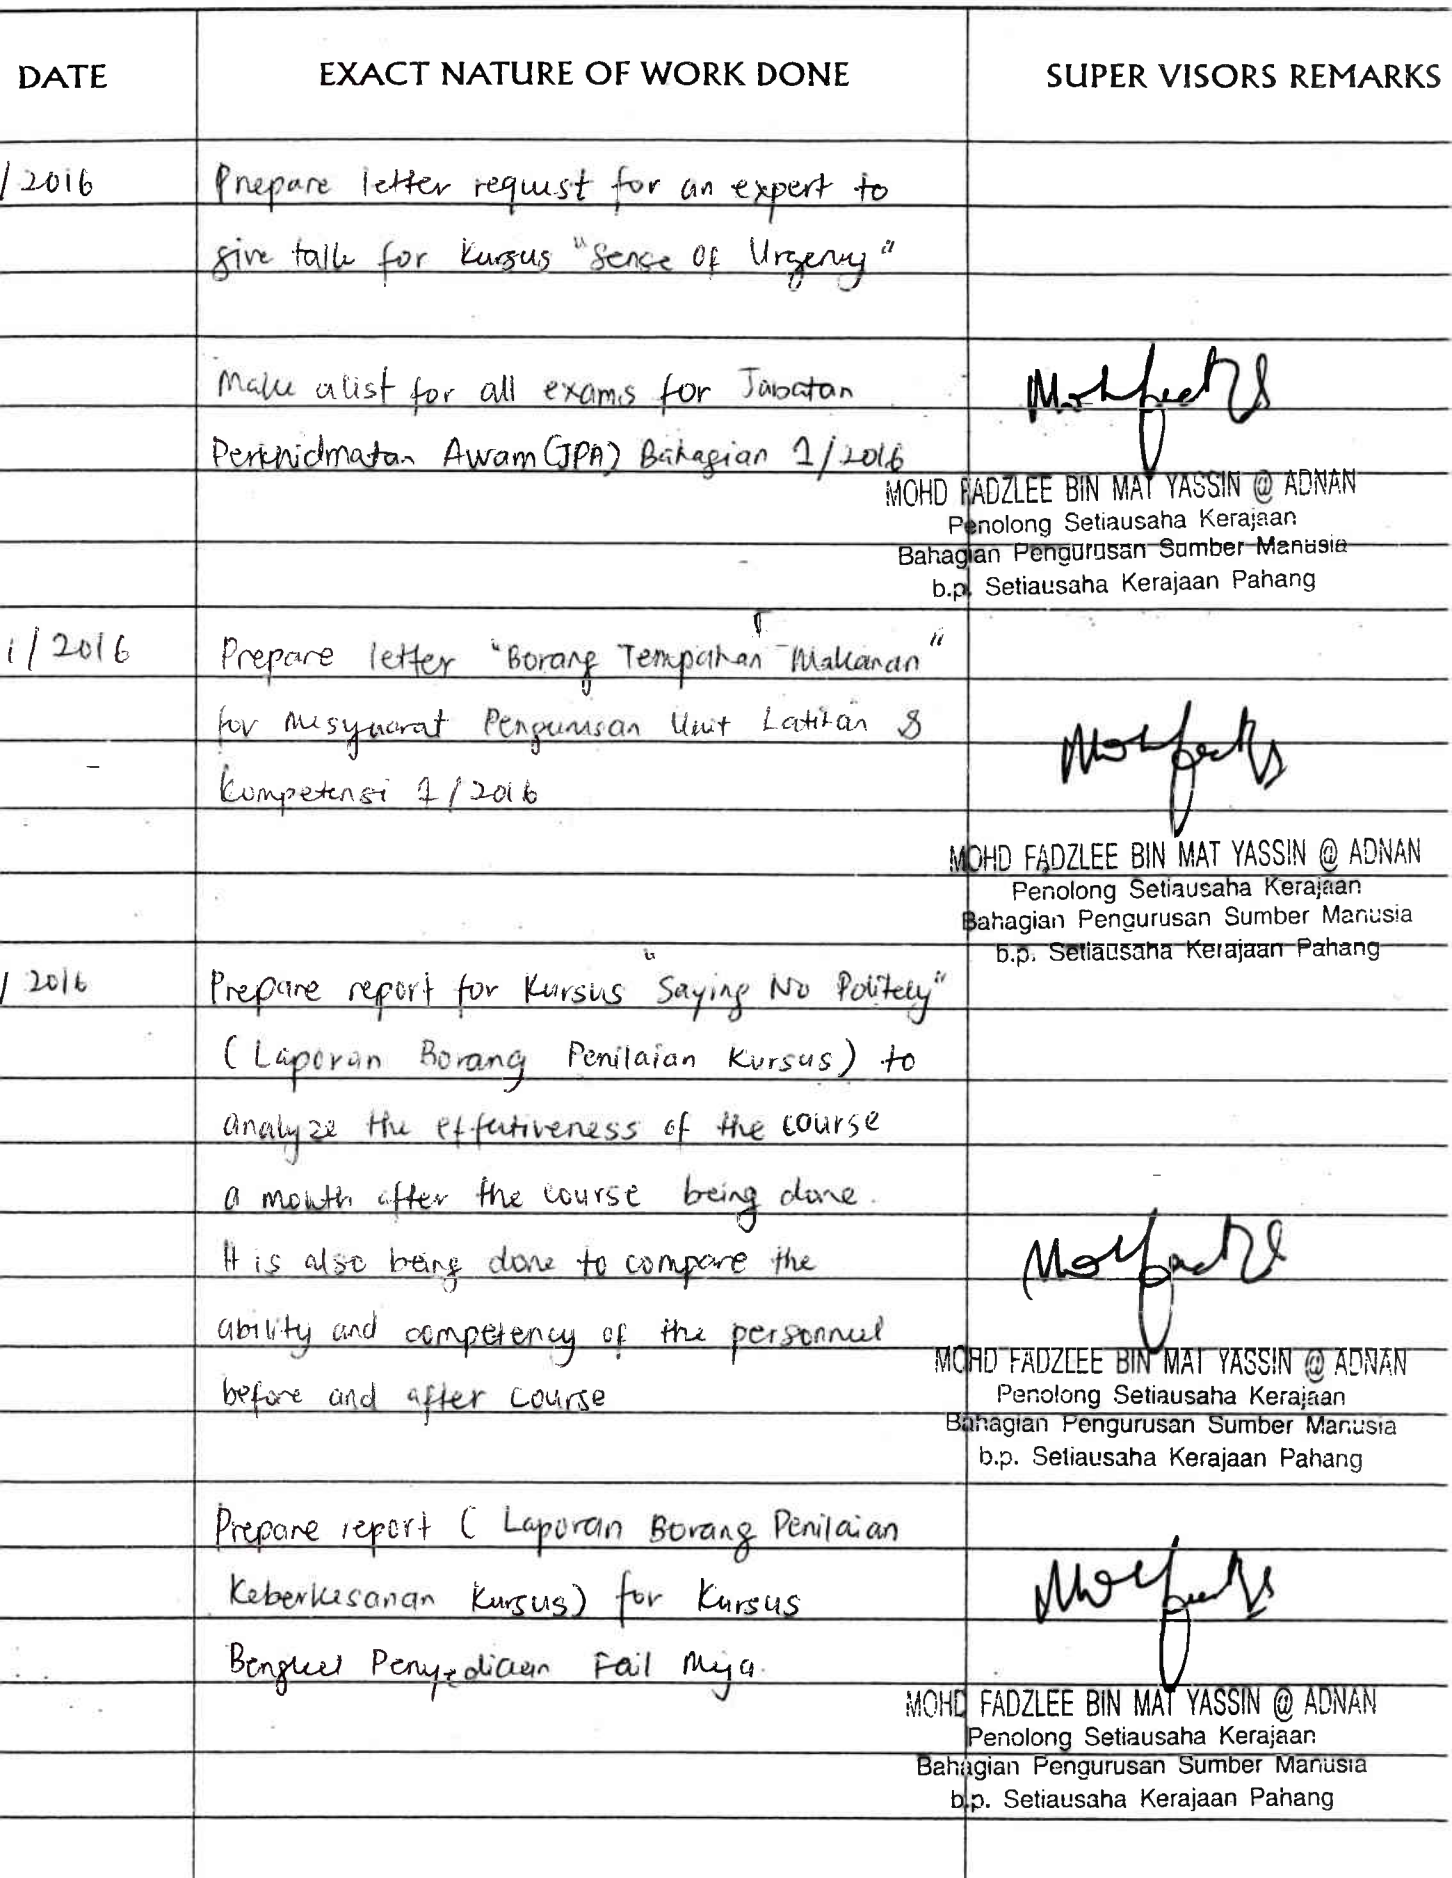 DATE EXACT NATURE OF WORK DONE SUPER VISORS REMARKS
/2016 Prepare letter request for an expert to
give talk for Kursus "Sense Of Urgency"
Make a list for all exams for Jabatan
Perkhidmatan Awam (JPA) Bahagian 1/2016
MOHD FADZLEE BIN MAT YASSIN @ ADNAN
Penolong Setiausaha Kerajaan
Bahagian Pengurusan Sumber Manusia
b.p. Setiausaha Kerajaan Pahang
1/2016 Prepare letter "Borang Tempahan Makanan"
for Mesyuarat Pengurusan Unit Latihan &
Kompetensi 1/2016
MOHD FADZLEE BIN MAT YASSIN @ ADNAN
Penolong Setiausaha Kerajaan
Bahagian Pengurusan Sumber Manusia
b.p. Setiausaha Kerajaan Pahang
/2016 Prepare report for Kursus "Saying No Politely"
(Laporan Borang Penilaian Kursus) to
analyze the effectiveness of the course
a month after the course being done.
It is also being done to compare the
ability and competency of the personnel
before and after course
MOHD FADZLEE BIN MAT YASSIN @ ADNAN
Penolong Setiausaha Kerajaan
Bahagian Pengurusan Sumber Manusia
b.p. Setiausaha Kerajaan Pahang
Prepare report (Laporan Borang Penilaian
Keberkesanan Kursus) for Kursus
Bengkel Penyediaan Fail Meja.
MOHD FADZLEE BIN MAT YASSIN @ ADNAN
Penolong Setiausaha Kerajaan
Bahagian Pengurusan Sumber Manusia
b.p. Setiausaha Kerajaan Pahang